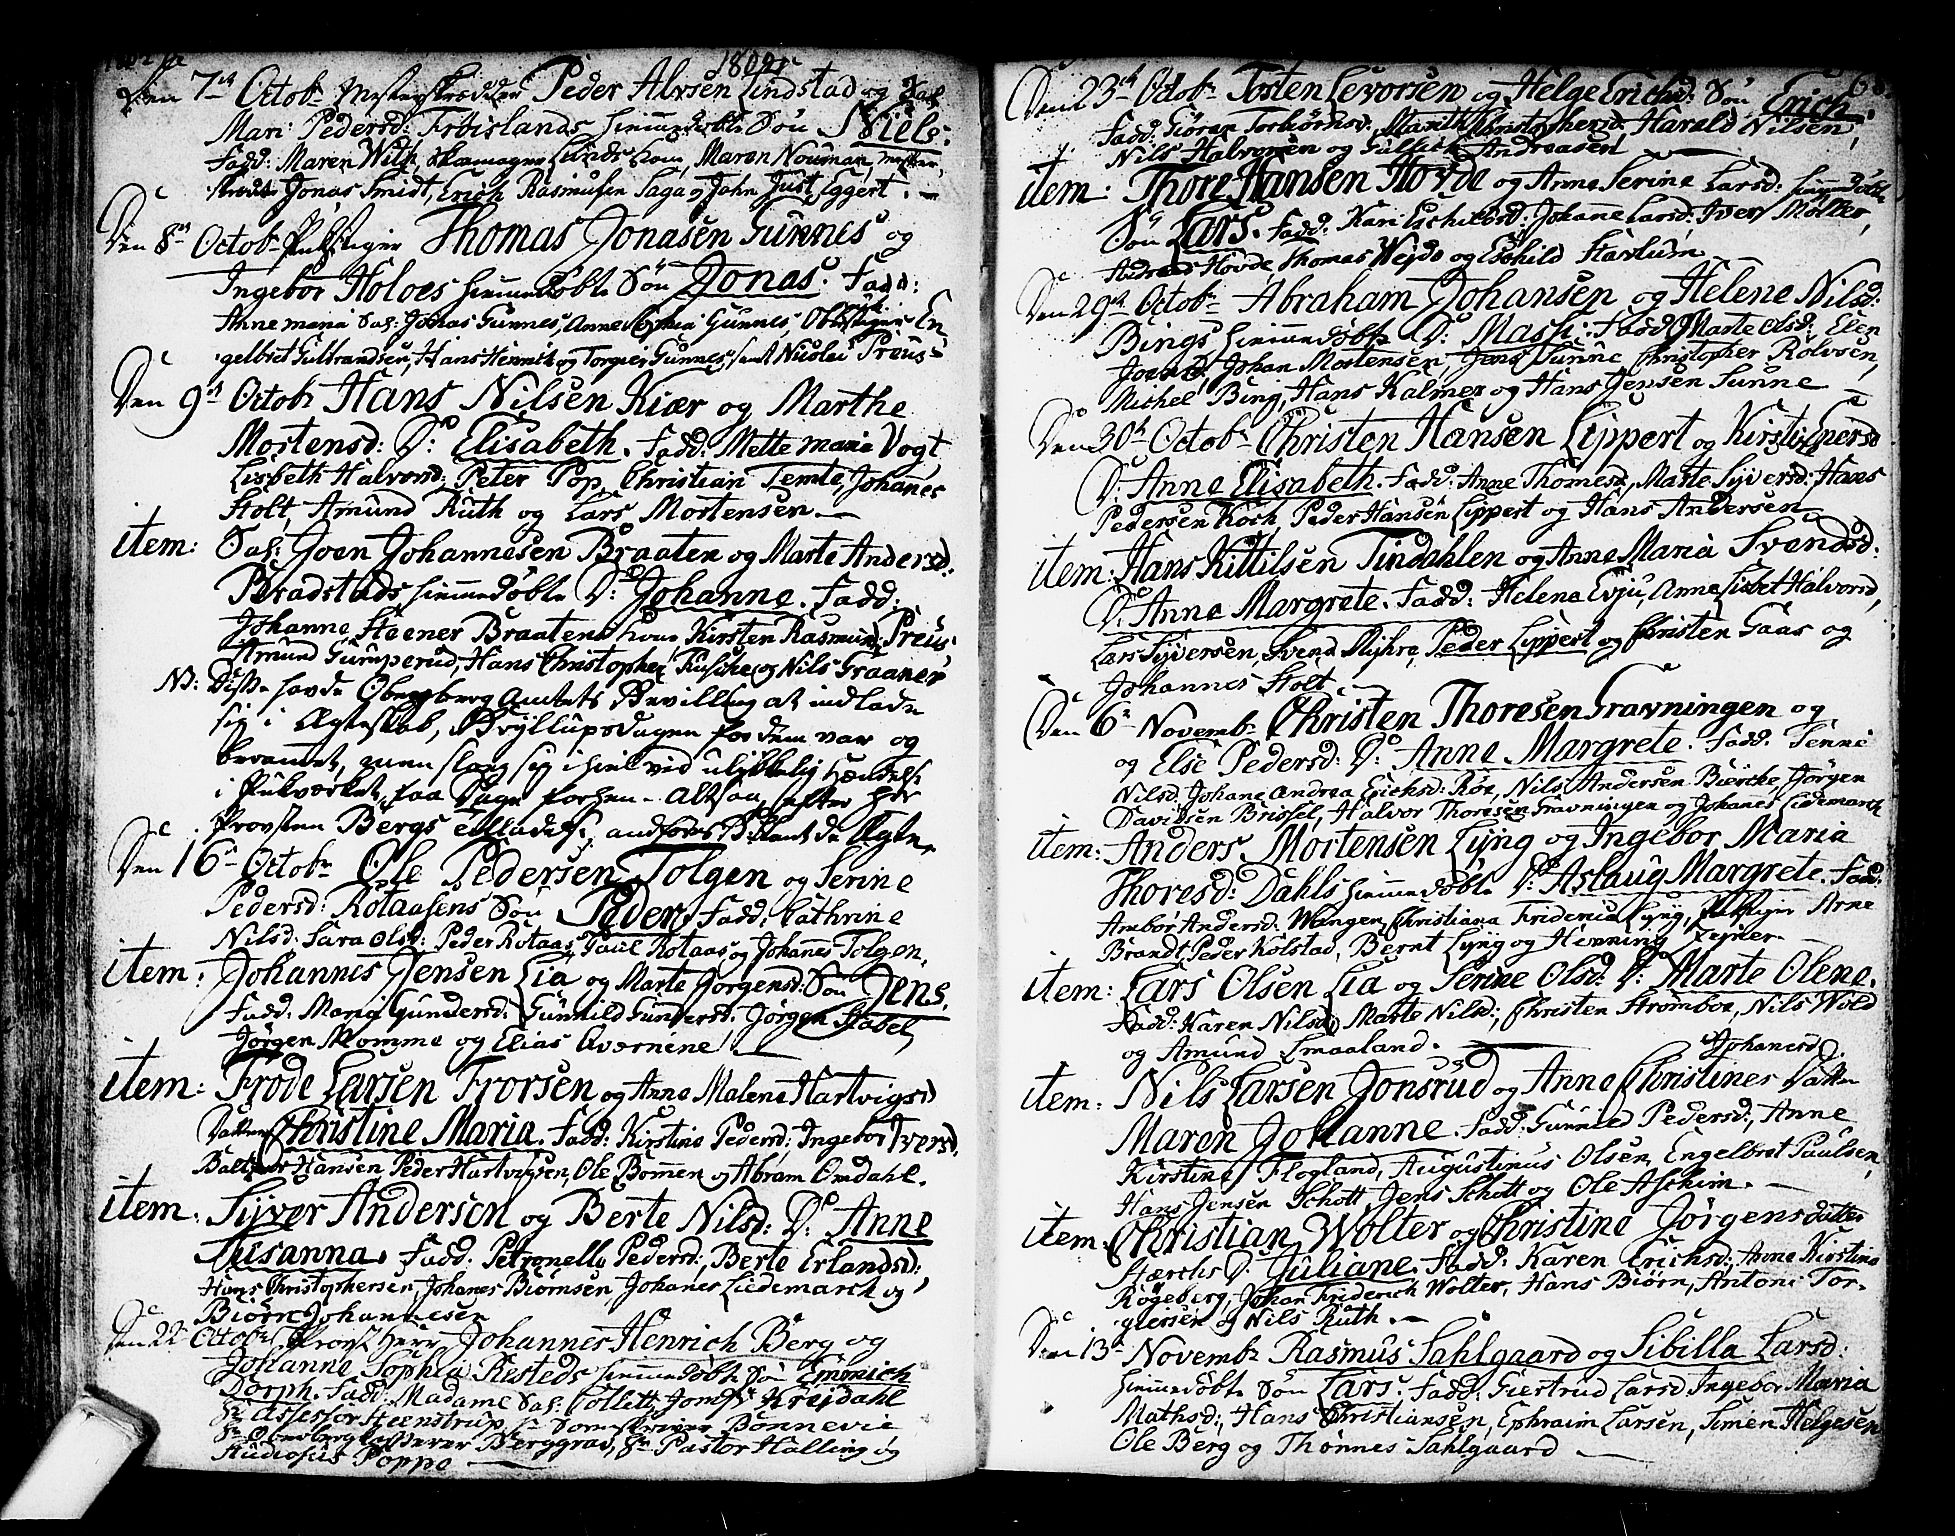 1802
Den 7de Octobr Mesterskredder Peder Alvsen Lindstad og
Mari Pedersd: Frøislands hiemmedøbte Søn Niels:
Fadd: Maren Wilh, Lunds kone, Maren Nouman, mester
Jonas Smidt, Erich Rasmusen Saga og John Just Eggert. –
Den 8de Octobr Pukstiger Thomas Jonasen Gunnes og
Ingebor Holoes hiemmedøbte Søn Jonas. Fadd:
Anne maria Sal: Jonas Gunnes, Anne Sophia Gunnes, Oberstiger En
gelbret Gulbrandsen, Hans Henrik og Torgrei Gunnes, samt Nicolai Preus
Den 9de Octobr Hans Nilsen Kiær og Marthe
Mortensd: D: Elisabeth. Fadd: Mette maria Vogt
Lisbeth Halvorsd: Peter Pop, Christian Temte, Johanes
Holt, Amund Ruth og Lars Mortensen –
item: Sal: Joen Johannesen Braaten og Marte Andersd:
Bradstads hiemmedøbte D: Johanne. Fadd:
Johanne Steener Braatens kone Kirsten Rasmus Preus
Amund Guruperud, Hans Christopher og Nils Graaner
NB: Disse havde Oberberg Amtets Bevilling at indlade
sig i Ægteskab, Bryllupsdagen for dem var og
berammet, men slog sig ihiel ved ulykkelig Hændelse
i Pukværket, faa Dage forhen – Altsaa, efter Her
Provsten Bergs tilladelse, andføres Barnet da Ægte.
Den 16de Octobr Ole Pedersen Tolgen og Serine
Pedersd: Rotaasens Søn Peder. Fadd: Cathrine
Nilsd: Sara Olsd: Peder Rotaas, Paul Rotaas og Johanes Tolgen.
item: Johannes Jensen Lia og Marte Jørgensd: Søn Jens.
Fadd: Maria Gundersd: Gunnild Gundersd: Jørgen Stabel,
Jørgen Momme og Elias Avernene –
item: Frode Larsen Frorsen og Anne Malene Hartvigsd
Datter Christine Maria. Fadd: Kirstine Pedersd; Ingebor Iversd,
Baltzer Hansen Peder Hartvigsen, Ole Bommen og Abram Omdahl.
item: Syver Andersen og Berte Nilsd: D: Anne
Susanna. Fadd: Petronelle Pedersd: Berte Erlandsd:
Hans Christophersen, Johanes Biørnsen, Johanes Liedemarck og
Biørn Johannesen
Den 22 Octobr Provst Herr Johannes Henrich Berg og
Johanne Sophia Resteds hiemmedøbte Søn Emenich
Dorph. Fadd: Madame Sal: Collett, Jomfr Krejdahl
Hr Assessor Heenstrup, Hr Sorenskriver Bonnevie
Hr Oberbergmesterer Berggrav, Hr Pastor Halling og
Studiosus Poppe –
Den 23de Octobr Tosten Levorsen og Helge Erichsd: Søn Erich.
Fadd: Giøran Torbiørnsd: Marith Christophersd: Harald Nilsen,
Nils Halvorsen og Gullich Andreasen
item: Thore Hansen Hovde og Anne Serine Larsd: hiemmedøbte
Søn Lars. Fadd: Kari Eschildsd: Johane Larsd: Iver Møller,
Andreas Hovde Thomas Wejdo og Eschild Harlum
Den 29de Octobr Abraham Johansen og Helene Nilsd:
Bings hiemmedøbte D: Mash: Fadd: Marte Olsd: Elen
Joensd. Johan Mortensen, Jens Sunne Christopher Rolvsen,
Michel Bing, Hans Kalmer og Hans Jensen Sunne –
Den 30de Octobr Christen Hansen Lippert og Kirsti Enersd
D: Anne Elisabeth. Fadd: Anne Thomesd, Marte Syversd: Hans
Pedersen Koch, Peder Hansen Lippert og Hans Andersen.
item: Hans Kittilsen Tindahlen og Anne Maria Svendsd:
D: Anne Margrete. Fadd: Helena Evju, Anne Lisbet Halvorsd,
Lars Syversen, Svend Myhra, Peder Lippert og Christen Gaas og
Johannes Holt
Den 6te Novembr Christen Thoresen Gravningen og
og Else Pedersd: D: Anne Margrete. Fadd: Jenne
Nilsd. Johane Andrea Erichsd: Røe, Nils Andersen Bierche, Jørgen
Davidsen Brissel, Halvor Thoresen Gravningen og Johanes Liedemarck
item: Anders Mortensen Lyng og Ingebor Maria
Thoresd: Dahls hiemmedøbte D: Aslaug Margrete. Fadd:
Ambor Andersd: Wangen, Christiana Friderica Lyng, Pukstiger Arne
Brandt, Peder Kolstad, Bernt Lyng og Henning Zejner –
item: Lars Olsen Lia og Serine Olsd: D: Marte Olene.
Fadd: Karen Nilsd, Marte Nilsd; Christen Strømboe, Nils Wold
og Amund Smaaland. –
item: Nils Larsen Jonsrud og Anne Christine Johanesd. Datter
Maren Johanne. Fadd: Gunnild Pedersd:, Anne
Kirstine Flogland, Augustinus Olsen, Engelbret Paulsen,
Hans Jensen Schott Jens Schott og Ole Aschim. –
item Christian Wolter og Christine Jørgensdatter
Stærchs D: Juliane. Fadd: Karen Erichsd:, Anne Kirstine
Rogeberg, Johan Friderich Wolter, Hans Biørn, Antoni Tor-
giersen og Nils Ruth. –
Den 13de Novembr Rasmus Sahlgaard og Sibilla Larsd:
hiemmedøbte Søn Lars. Fadd: Giertrud Larsd Ingebor Maria
Mathsd:, Hans Christiansen, Ephraim Larsen, Simen Helgesen
Ole Berg og Thønnes Sahlgaard –